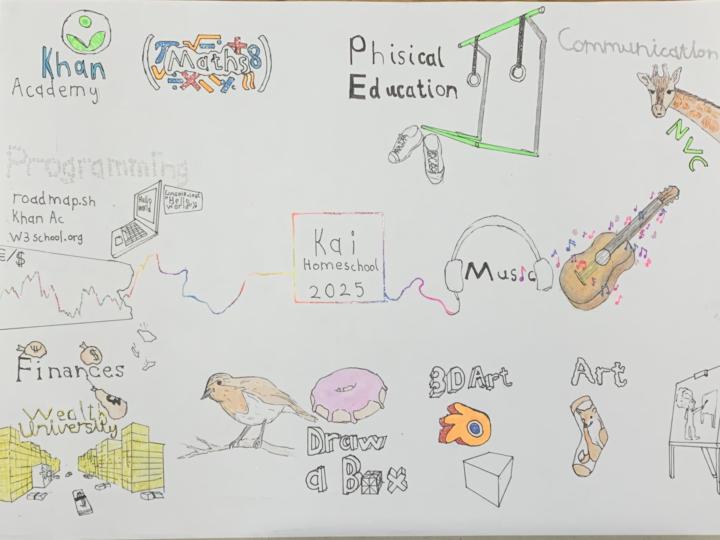 Khan
Academy
Maths
Phisical
Education
Communication
NVC
Programming
roadmap.sh
Khan Ac
W3school.org
Hello
World
€/$
Kai
Homeschool
2025
Music
Finances
$
Wealth
University
Draw
a Box
3D Art
Art